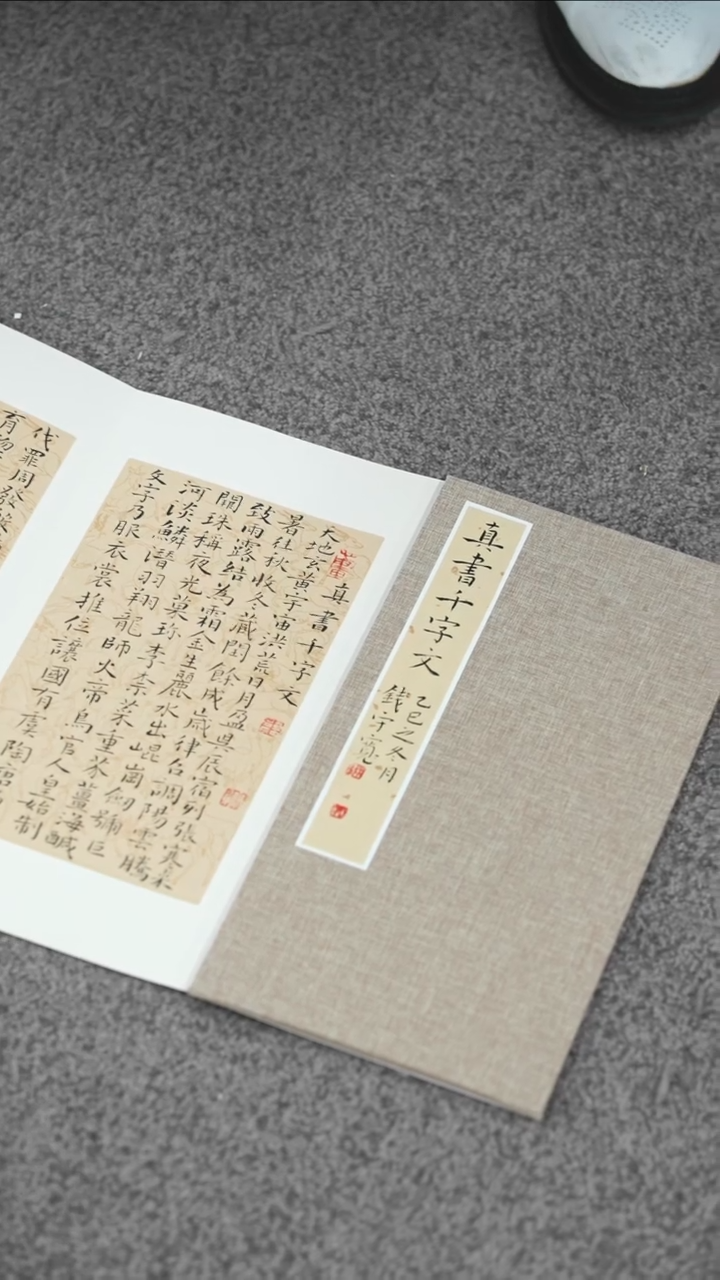 真書千字文
乙巳之冬月
錢
真書千字文
天地玄黃宇宙洪荒日月盈昃辰宿列張寒來
暑往秋收冬藏閏餘成歲律吕調陽雲騰
致雨露結為霜金生麗水出崐崗劍號巨
闕珠稱夜光菓珍李柰菜重芥薑海鹹
河淡鱗潛羽翔龍師火帝鳥官人皇始制
文字乃服衣裳推位讓國有虞陶唐
伐罪周發殷
育